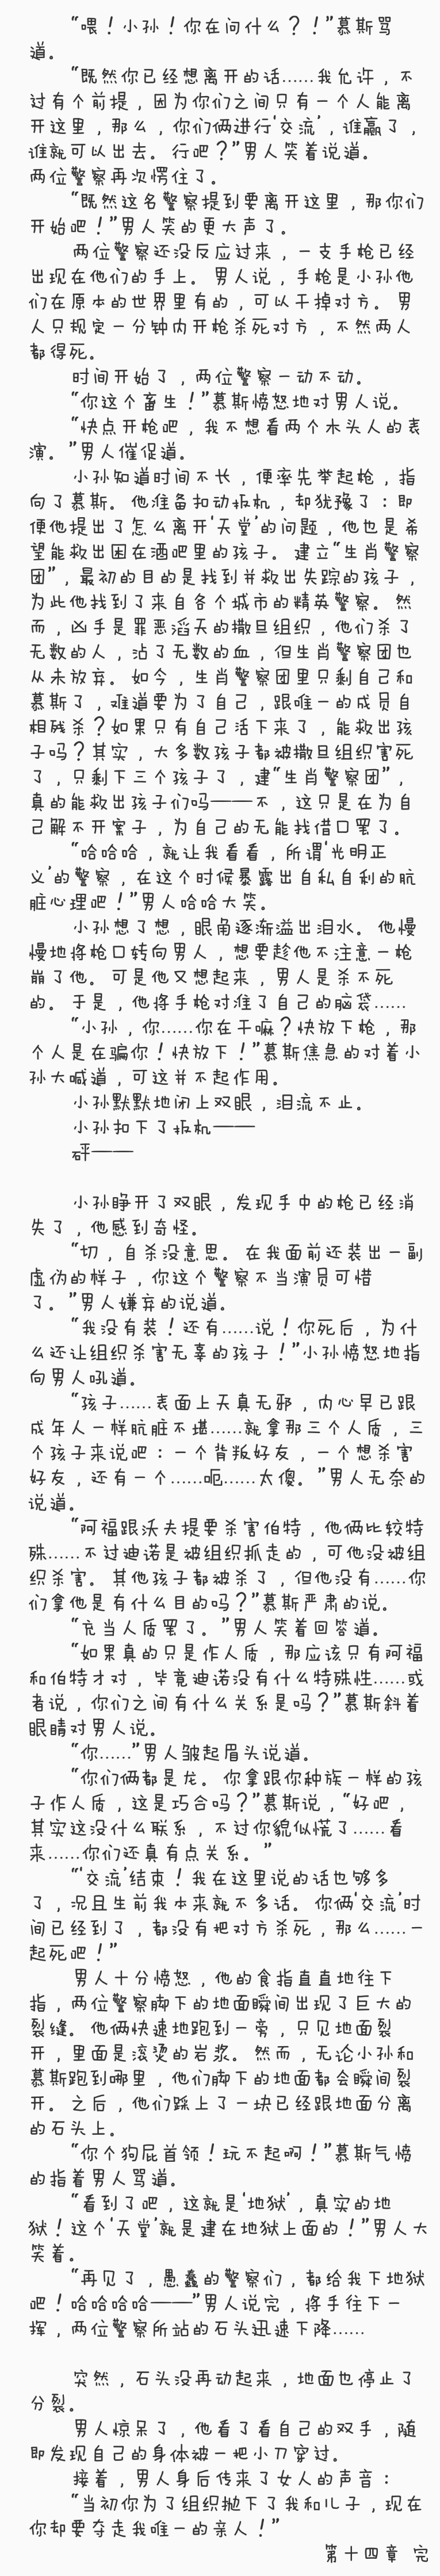 “喂！小孙！你在问什么？！”慕斯骂
道。
“既然你已经想离开的话……我允许，不
过有个前提，因为你们之间只有一个人能离
开这里，那么，你们俩进行‘交流’，谁赢了，
谁就可以出去。行吧？”男人笑着说道。
两位警察再次愣住了。
“既然这名警察提到要离开这里，那你们
开始吧！”男人笑的更大声了。
两位警察还没反应过来，一支手枪已经
出现在他们的手上。男人说，手枪是小孙他
们在原本的世界里有的，可以干掉对方。男
人只规定一分钟内开枪杀死对方，不然两人
都得死。
时间开始了，两位警察一动不动。
“你这个畜生！”慕斯愤怒地对男人说。
“快点开枪吧，我不想看两个木头人的表
演。”男人催促道。
小孙知道时间不长，便率先举起枪，指
向了慕斯。他准备扣动扳机，却犹豫了：即
便他提出了怎么离开‘天堂’的问题，他也是希
望能救出困在酒吧里的孩子。建立“生肖警察
团”，最初的目的是找到并救出失踪的孩子，
为此他找到了来自各个城市的精英警察。然
而，凶手是罪恶滔天的撒旦组织，他们杀了
无数的人，沾了无数的血，但生肖警察团也
从未放弃。如今，生肖警察团里只剩自己和
慕斯了，难道要为了自己，跟唯一的成员自
相残杀？如果只有自己活下来了，能救出孩
子吗？其实，大多数孩子都被撒旦组织害死
了，只剩下三个孩子了，建“生肖警察团”，
真的能救出孩子们吗——不，这只是在为自
己解不开案子，为自己的无能找借口罢了。
“哈哈哈，就让我看看，所谓‘光明正
义’的警察，在这个时候暴露出自私自利的肮
脏心理吧！”男人哈哈大笑。
小孙想了想，眼角逐渐溢出泪水。他慢
慢地将枪口转向男人，想要趁他不注意一枪
崩了他。可是他又想起来，男人是杀不死
的。于是，他将手枪对准了自己的脑袋……
“小孙，你……你在干嘛？快放下枪，那
个人是在骗你！快放下！”慕斯焦急的对着小
孙大喊道，可这并不起作用。
小孙默默地闭上双眼，泪流不止。
小孙扣下了扳机——
砰——
小孙睁开了双眼，发现手中的枪已经消
失了，他感到奇怪。
“切，自杀没意思。在我面前还装出一副
虚伪的样子，你这个警察不当演员可惜
了。”男人嫌弃的说道。
“我没有装！还有……说！你死后，为什
么还让组织杀害无辜的孩子！”小孙愤怒地指
向男人吼道。
“孩子……表面上天真无邪，内心早已跟
成年人一样肮脏不堪……就拿那三个人质，三
个孩子来说吧：一个背叛好友，一个想杀害
好友，还有一个……呃……太傻。”男人无奈的
说道。
“阿福跟沃夫提要杀害伯特，他俩比较特
殊……不过迪诺是被组织抓走的，可他没被组
织杀害。其他孩子都被杀了，但他没有……你
们拿他是有什么目的吗？”慕斯严肃的说。
“充当人质罢了。”男人笑着回答道。
“如果真的只是作人质，那应该只有阿福
和伯特才对，毕竟迪诺没有什么特殊性……或
者说，你们之间有什么关系是吗？”慕斯斜着
眼睛对男人说。
“你……”男人皱起眉头说道。
“你们俩都是龙。你拿跟你种族一样的孩
子作人质，这是巧合吗？”慕斯说，“好吧，
其实这没什么联系，不过你貌似慌了……看
来……你们还真有点关系。”
“‘交流’结束！我在这里说的话也够多
了，况且生前我本来就不多话。你俩‘交流’时
间已经到了，都没有把对方杀死，那么……一
起死吧！”
男人十分愤怒，他的食指直直地往下
指，两位警察脚下的地面瞬间出现了巨大的
裂缝。他俩快速地跑到一旁，只见地面裂
开，里面是滚烫的岩浆。然而，无论小孙和
慕斯跑到哪里，他们脚下的地面都会瞬间裂
开。之后，他们踩上了一块已经跟地面分离
的石头上。
“你个狗屁首领！玩不起啊！”慕斯气愤
的指着男人骂道。
“看到了吧，这就是‘地狱’，真实的地
狱！这个‘天堂’就是建在地狱上面的！”男人大
笑着。
“再见了，愚蠢的警察们，都给我下地狱
吧！哈哈哈哈——”男人说完，将手往下一
挥，两位警察所站的石头迅速下降……
突然，石头没再动起来，地面也停止了
分裂。
男人惊呆了，他看了看自己的双手，随
即发现自己的身体被一把小刀穿过。
接着，男人身后传来了女人的声音：
“当初你为了组织抛下了我和儿子，现在
你却要夺走我唯一的亲人！”
第十四章 完